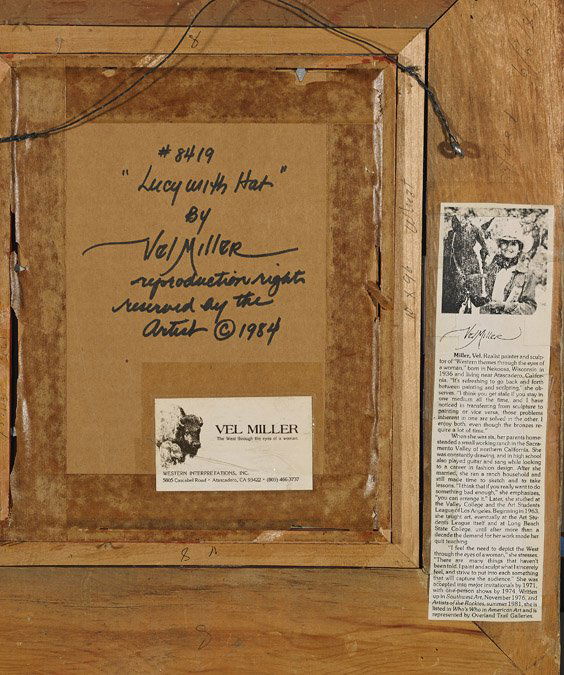 # 8419
"Lucy with Hat"
By
Vel Miller
reproduction rights
reserved by the
Artist © 1984
VEL MILLER
The West through the eyes of a woman.
WESTERN INTERPRETATIONS, INC.
5805 Cascabel Road • Atascadero, CA 93422 • (805) 466-3737
Vel Miller
Miller, Vel. Realist painter and sculp-
tor of "Western themes through the eyes of
a woman," born in Nekoosa, Wisconsin in
1936 and living near Atascadero, Califor-
nia. "It's refreshing to go back and forth
between painting and sculpting," she ob-
serves. "I think you get stale if you stay in
one medium all the time, and I have
noticed in transferring from sculpture to
painting or vice versa, those problems
inherent in one are solved in the other. I
enjoy both, even though the bronzes re-
quire a lot of time."
When she was six, her parents home-
steaded a small working ranch in the Sacra-
mento Valley of northern California. She
was constantly drawing, and in high school
also played guitar and sang while looking
to a career in fashion design. After she
married, she ran a ranch household and
still made time to sketch and to take
lessons. "I think that if you really want to do
something bad enough," she emphasizes,
"you can arrange it." Later, she studied at
the Valley College and the Art Students
League of Los Angeles. Beginning in 1963,
she taught art, eventually at the Art Stu-
dents League itself and at Long Beach
State College, until after more than a
decade the demand for her work made her
quit teaching.
"I feel the need to depict the West
through the eyes of a woman," she stresses.
"There are many things that haven't
been told. I paint and sculpt what I sincerely
feel, and strive to put into each something
that will capture the audience." She was
accepted into major invitationals by 1971,
with one-person shows by 1974. Written
up in Southwest Art, November 1976, and
Artists of the Rockies, summer 1981, she is
listed in Who's Who in American Art and is
represented by Overland Trail Galleries.